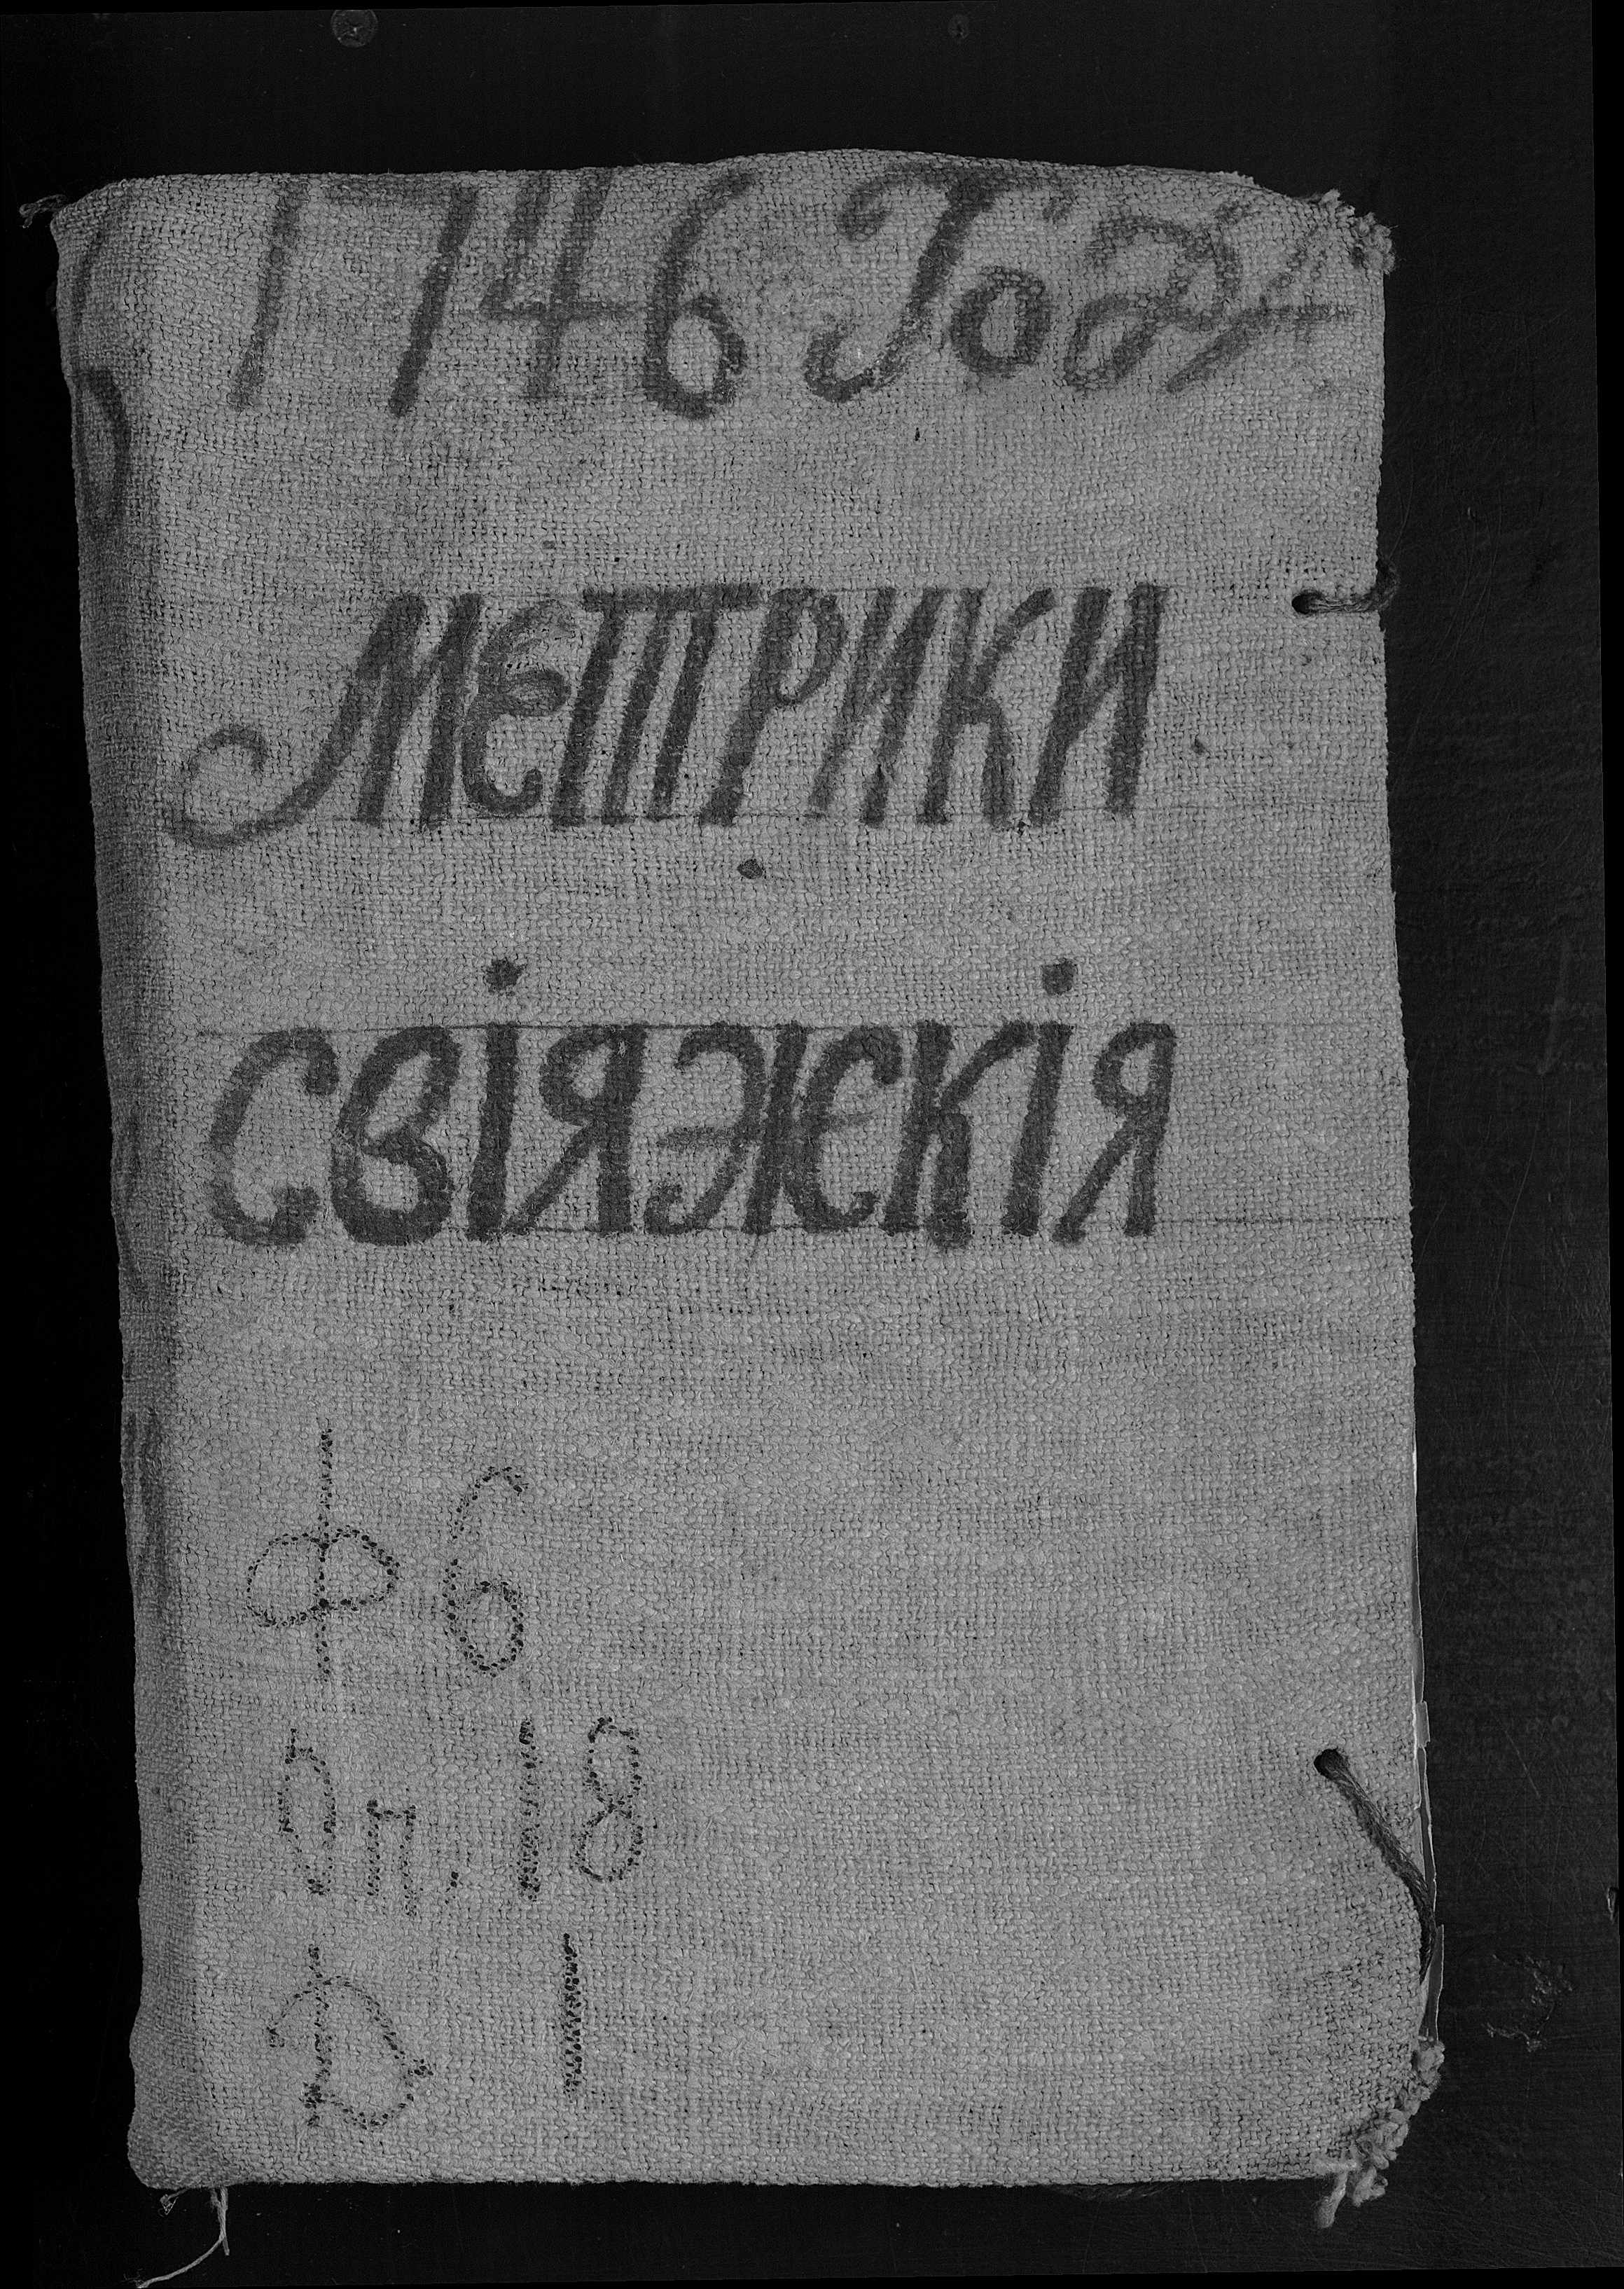 1746 Года
МЕТРИКИ
СВІЯЖЕКІЯ
Ф 6
Оп. 18
Д 1